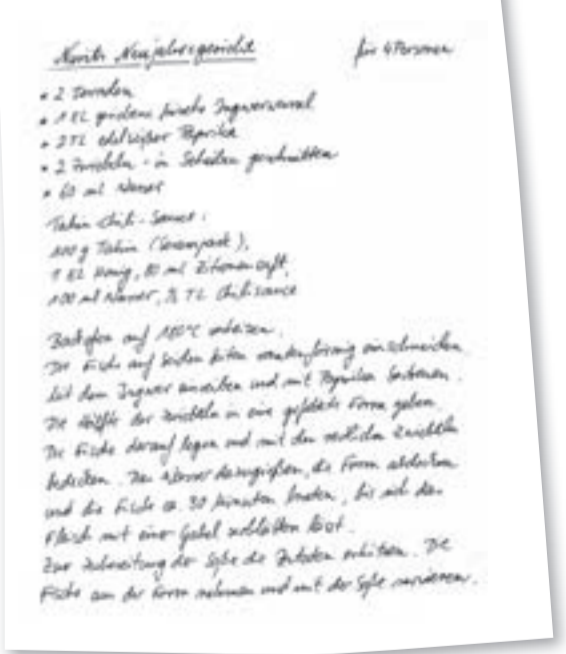 Noriths Neujahrsgericht für 4 Personen
• 2 Doraden
• 1 EL geriebene frische Ingwerwurzel
• 2 TL edelsüßer Paprika
• 2 Zwiebeln - in Scheiben geschnitten
• 60 ml Wasser
Tahin-Chili-Sauce:
100 g Tahin (Sesampaste),
1 EL Honig, 80 ml Zitronensaft,
100 ml Wasser, ½ TL Chilisauce
Backofen auf 180°C vorheizen.
Die Fische auf beiden Seiten rautenförmig einschneiden
Mit dem Ingwer einreiben und mit Paprika bestreuen.
Die Hälfte der Zwiebeln in eine gefettete Form geben.
Die Fische darauf legen und mit den restlichen Zwiebeln
bedecken. Das Wasser dazugießen, die Form abdecken
und die Fische ca. 30 Minuten braten, bis sich das
Fleisch mit einer Gabel zerblättern lässt.
Zur Zubereitung der Soße die Zutaten erhitzen. Die
Fische aus der Form nehmen und mit der Soße servieren.